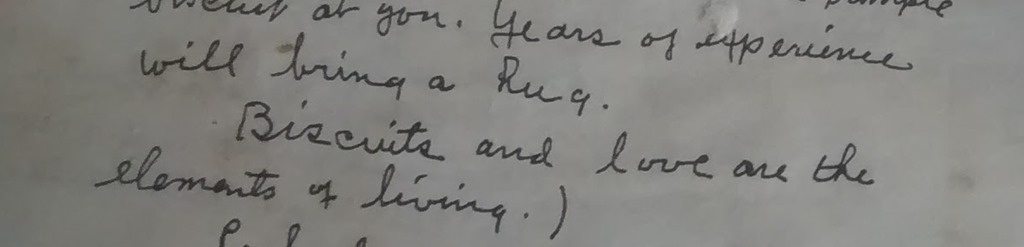 biscuit at you. Years of experience
will bring a Hug.
Biscuits and love are the
elements of living.)